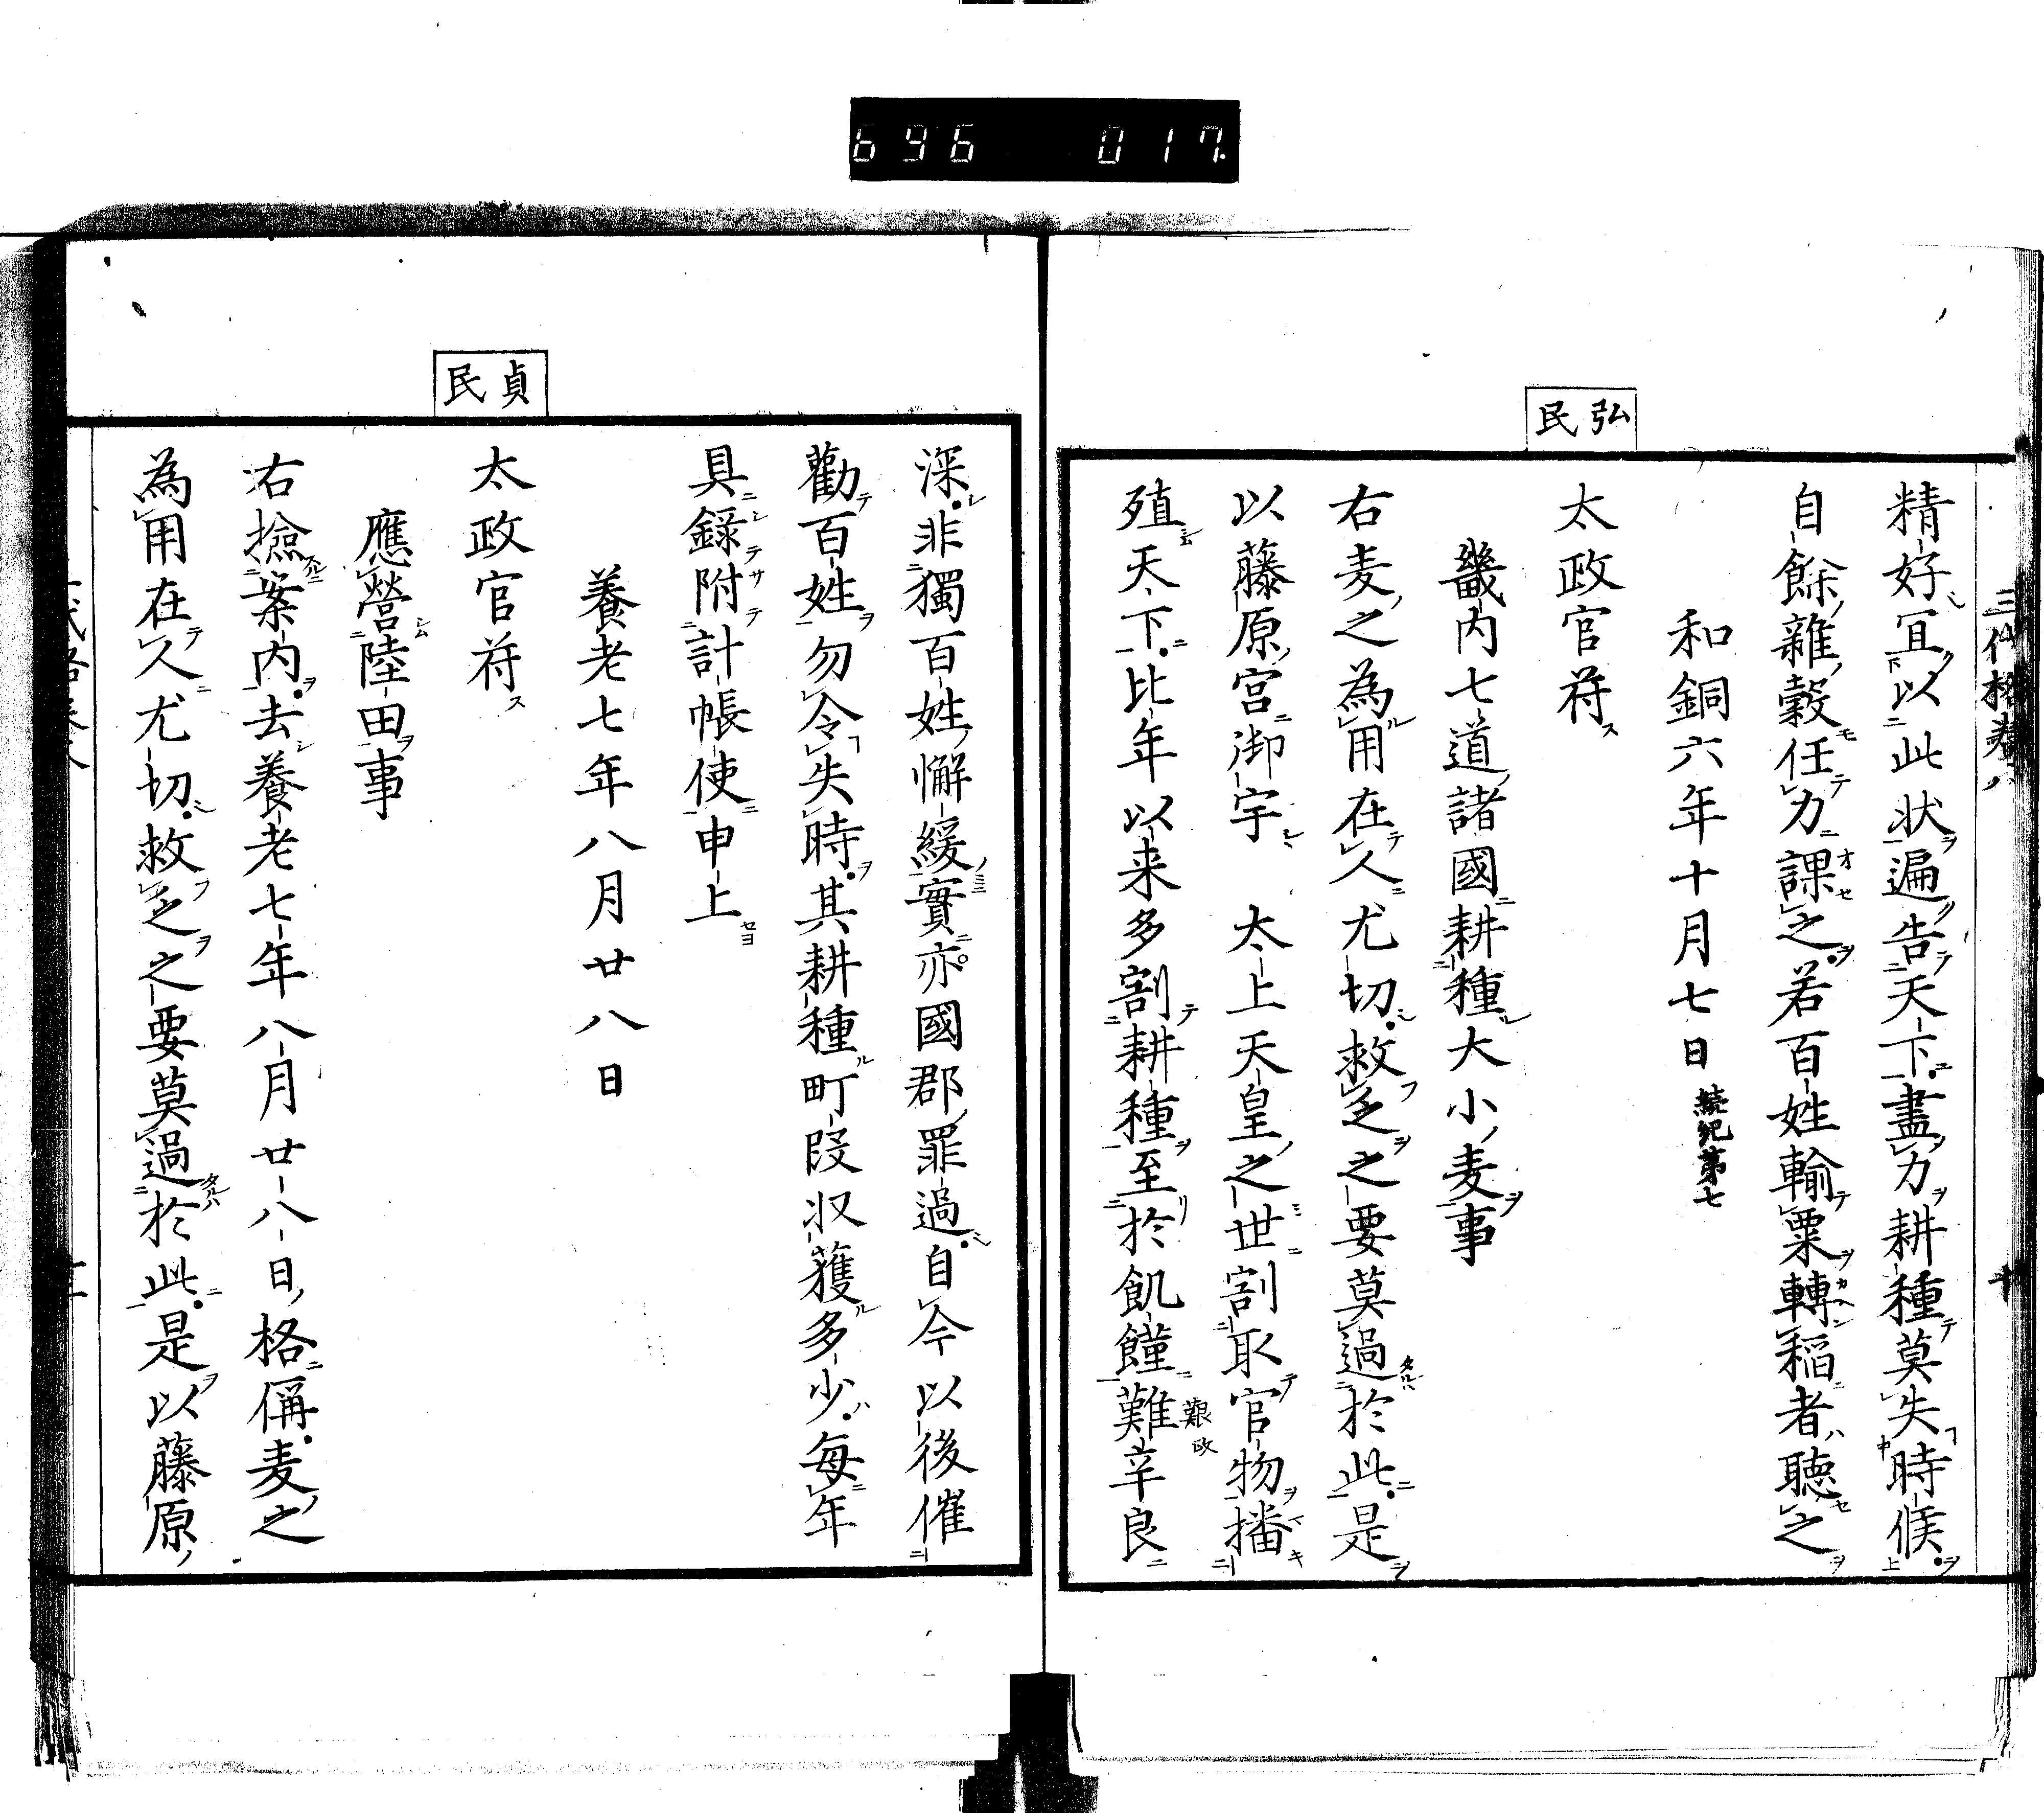 696 017
三代格巻八 十
弘民
精好宜以此状遍告天下盡力耕種莫失時候
自餘雜穀任力課之若百姓輸粟轉稲者聽之
和銅六年十月七日 続紀第七
太政官符ス
畿内七道諸國耕種大小麦事
右麦之為用在人尤切救乏之要莫過於此是
以藤原宮御宇 太上天皇之世割取官物播
殖天下比年以来多割耕種至於飢饉難辛良
艱
貞民
深非獨百姓懈緩實亦國郡罪過自今以後催
勸百姓勿令失時其耕種町段收獲多少每年
具錄附計帳使申上
養老七年八月廿八日
太政官符ス
應營陸田事
右撿案内去養老七年八月廿八日格偁麦之
為用在人尤切救乏之要莫過於此是以藤原